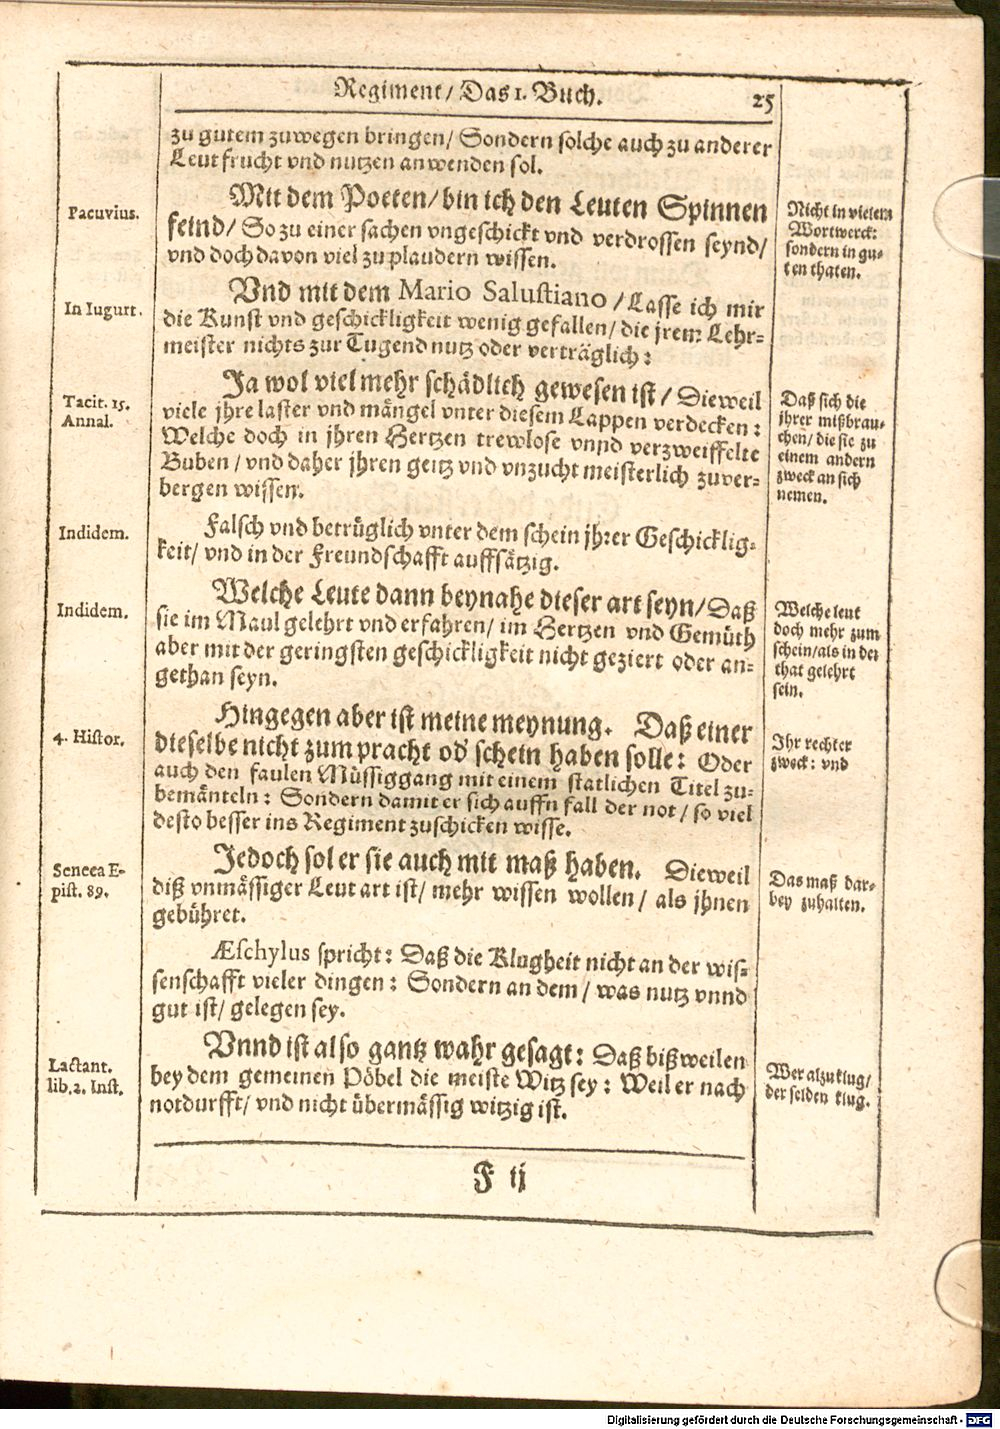 Regiment/ Das 1. Buch. 25
zu gutem zuwegen bringen/ Sondern solche auch zu anderer
Leut frucht vnd nutzen anwenden sol.
Pacuvius.
Mit dem Poeten/ bin ich den Leuten Spinnen
feind/ So zu einer sachen vngeschickt vnd verdrossen seynd/
vnd doch davon viel zu plaudern wissen.
Nicht in vielem
Wortwerck:
sondern in gu-
ten thaten.
In Iugurt.
Vnd mit dem Mario Salustiano / Lasse ich mir
die Kunst vnd geschickligkeit wenig gefallen/ die jrem Lehr-
meister nichts zur Tugend nutz oder verträglich:
Tacit. 15.
Annal.
Ja wol viel mehr schädlich gewesen ist/ Dieweil
viele jhre laster vnd mängel vnter diesem Lappen verdecken:
Welche doch in jhren Hertzen trewlose vnnd verzweiffelte
Buben/ vnd daher jhren geitz vnd vnzucht meisterlich zuver-
bergen wissen.
Daß sich die
jhrer mißbrau-
chen/ die sie zu
einem andern
zweck an sich
nemen.
Indidem.
Falsch vnd betrüglich vnter dem schein jhrer Geschicklig-
keit/ vnd in der Freundschafft auffsätzig.
Indidem.
Welche Leute dann beynahe dieser art seyn/ Daß
sie im Maul gelehrt vnd erfahren/ im Hertzen vnd Gemüth
aber mit der geringsten geschickligkeit nicht geziert oder an-
gethan seyn.
Welche leut
doch mehr zum
schein/als in der
that gelehrt
sein.
4. Histor.
Hingegen aber ist meine meynung. Daß einer
dieselbe nicht zum pracht od' schein haben solle: Oder
auch den faulen Müssiggang mit einem statlichen Titel zu-
bemänteln: Sondern damit er sich auffn fall der not/ so viel
desto besser ins Regiment zuschicken wisse.
Ihr rechter
zweck: vnd
Seneca E-
pist. 89.
Jedoch sol er sie auch mit maß haben. Dieweil
diß vnmässiger Leut art ist/ mehr wissen wollen/ als jhnen
gebühret.
Das maß dar-
bey zuhalten.
Æschylus spricht: Daß die Klugheit nicht an der wis-
senschafft vieler dingen: Sondern an dem/ was nutz vnnd
gut ist/ gelegen sey.
Lactant.
lib. 2. Inst.
Vnnd ist also gantz wahr gesagt: Daß bißweilen
bey dem gemeinen Pöbel die meiste Witz sey: Weil er nach
notdurfft/ vnd nicht übermässig witzig ist.
Wer alzu klug/
der selden klug.
F ij
Digitalisierung gefördert durch die Deutsche Forschungsgemeinschaft - DFG